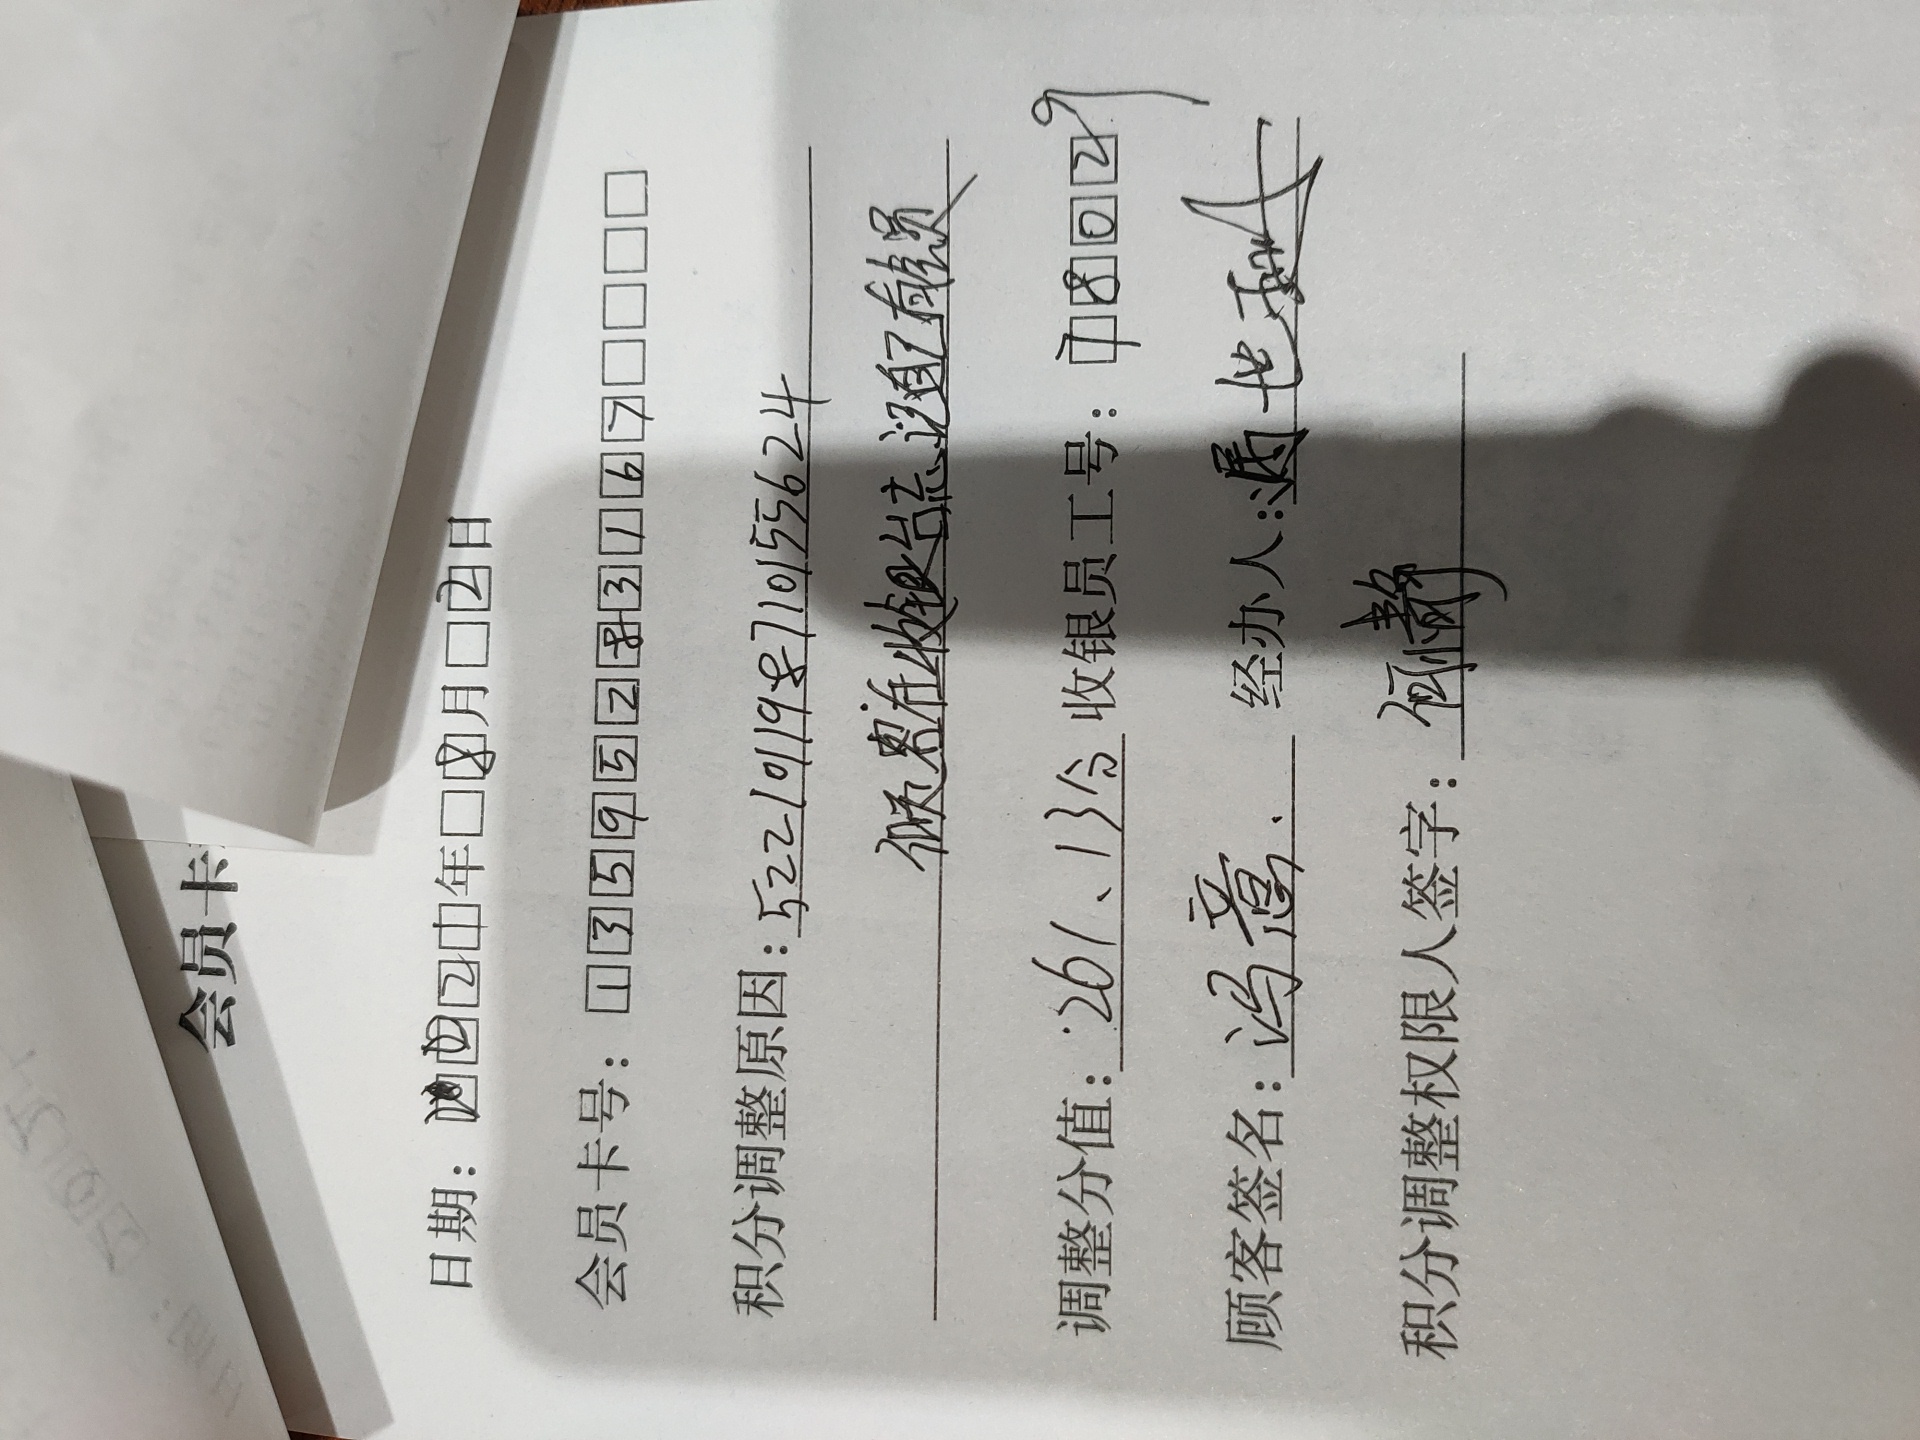 会员卡
日期：2022年8月2日
会员卡号：13595283167
积分调整原因：522101198710155624
顾客在收银台忘记报了会员
调整分值：261、13分 收银员工号：78029
顾客签名：冯意. 经办人：
积分调整权限人签字：何静